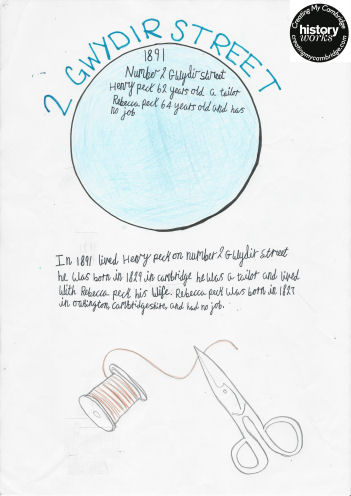 Creating My Cambridge
history
works
creatingmycambridge.com
2 GWYDIR STREET
1891
Number 2 Gwydir street
Henry peck 62 years old a tailor
Rebecca peck 64 years old and has
no job
In 1891 lived Henry peck on number 2 Gwydir street
he was born in 1829, in cambridge he was a tailor and lived
with Rebecca peck his wife. Rebecca peck was born in 1827
in oakington, cambridgeshire, and had no job.